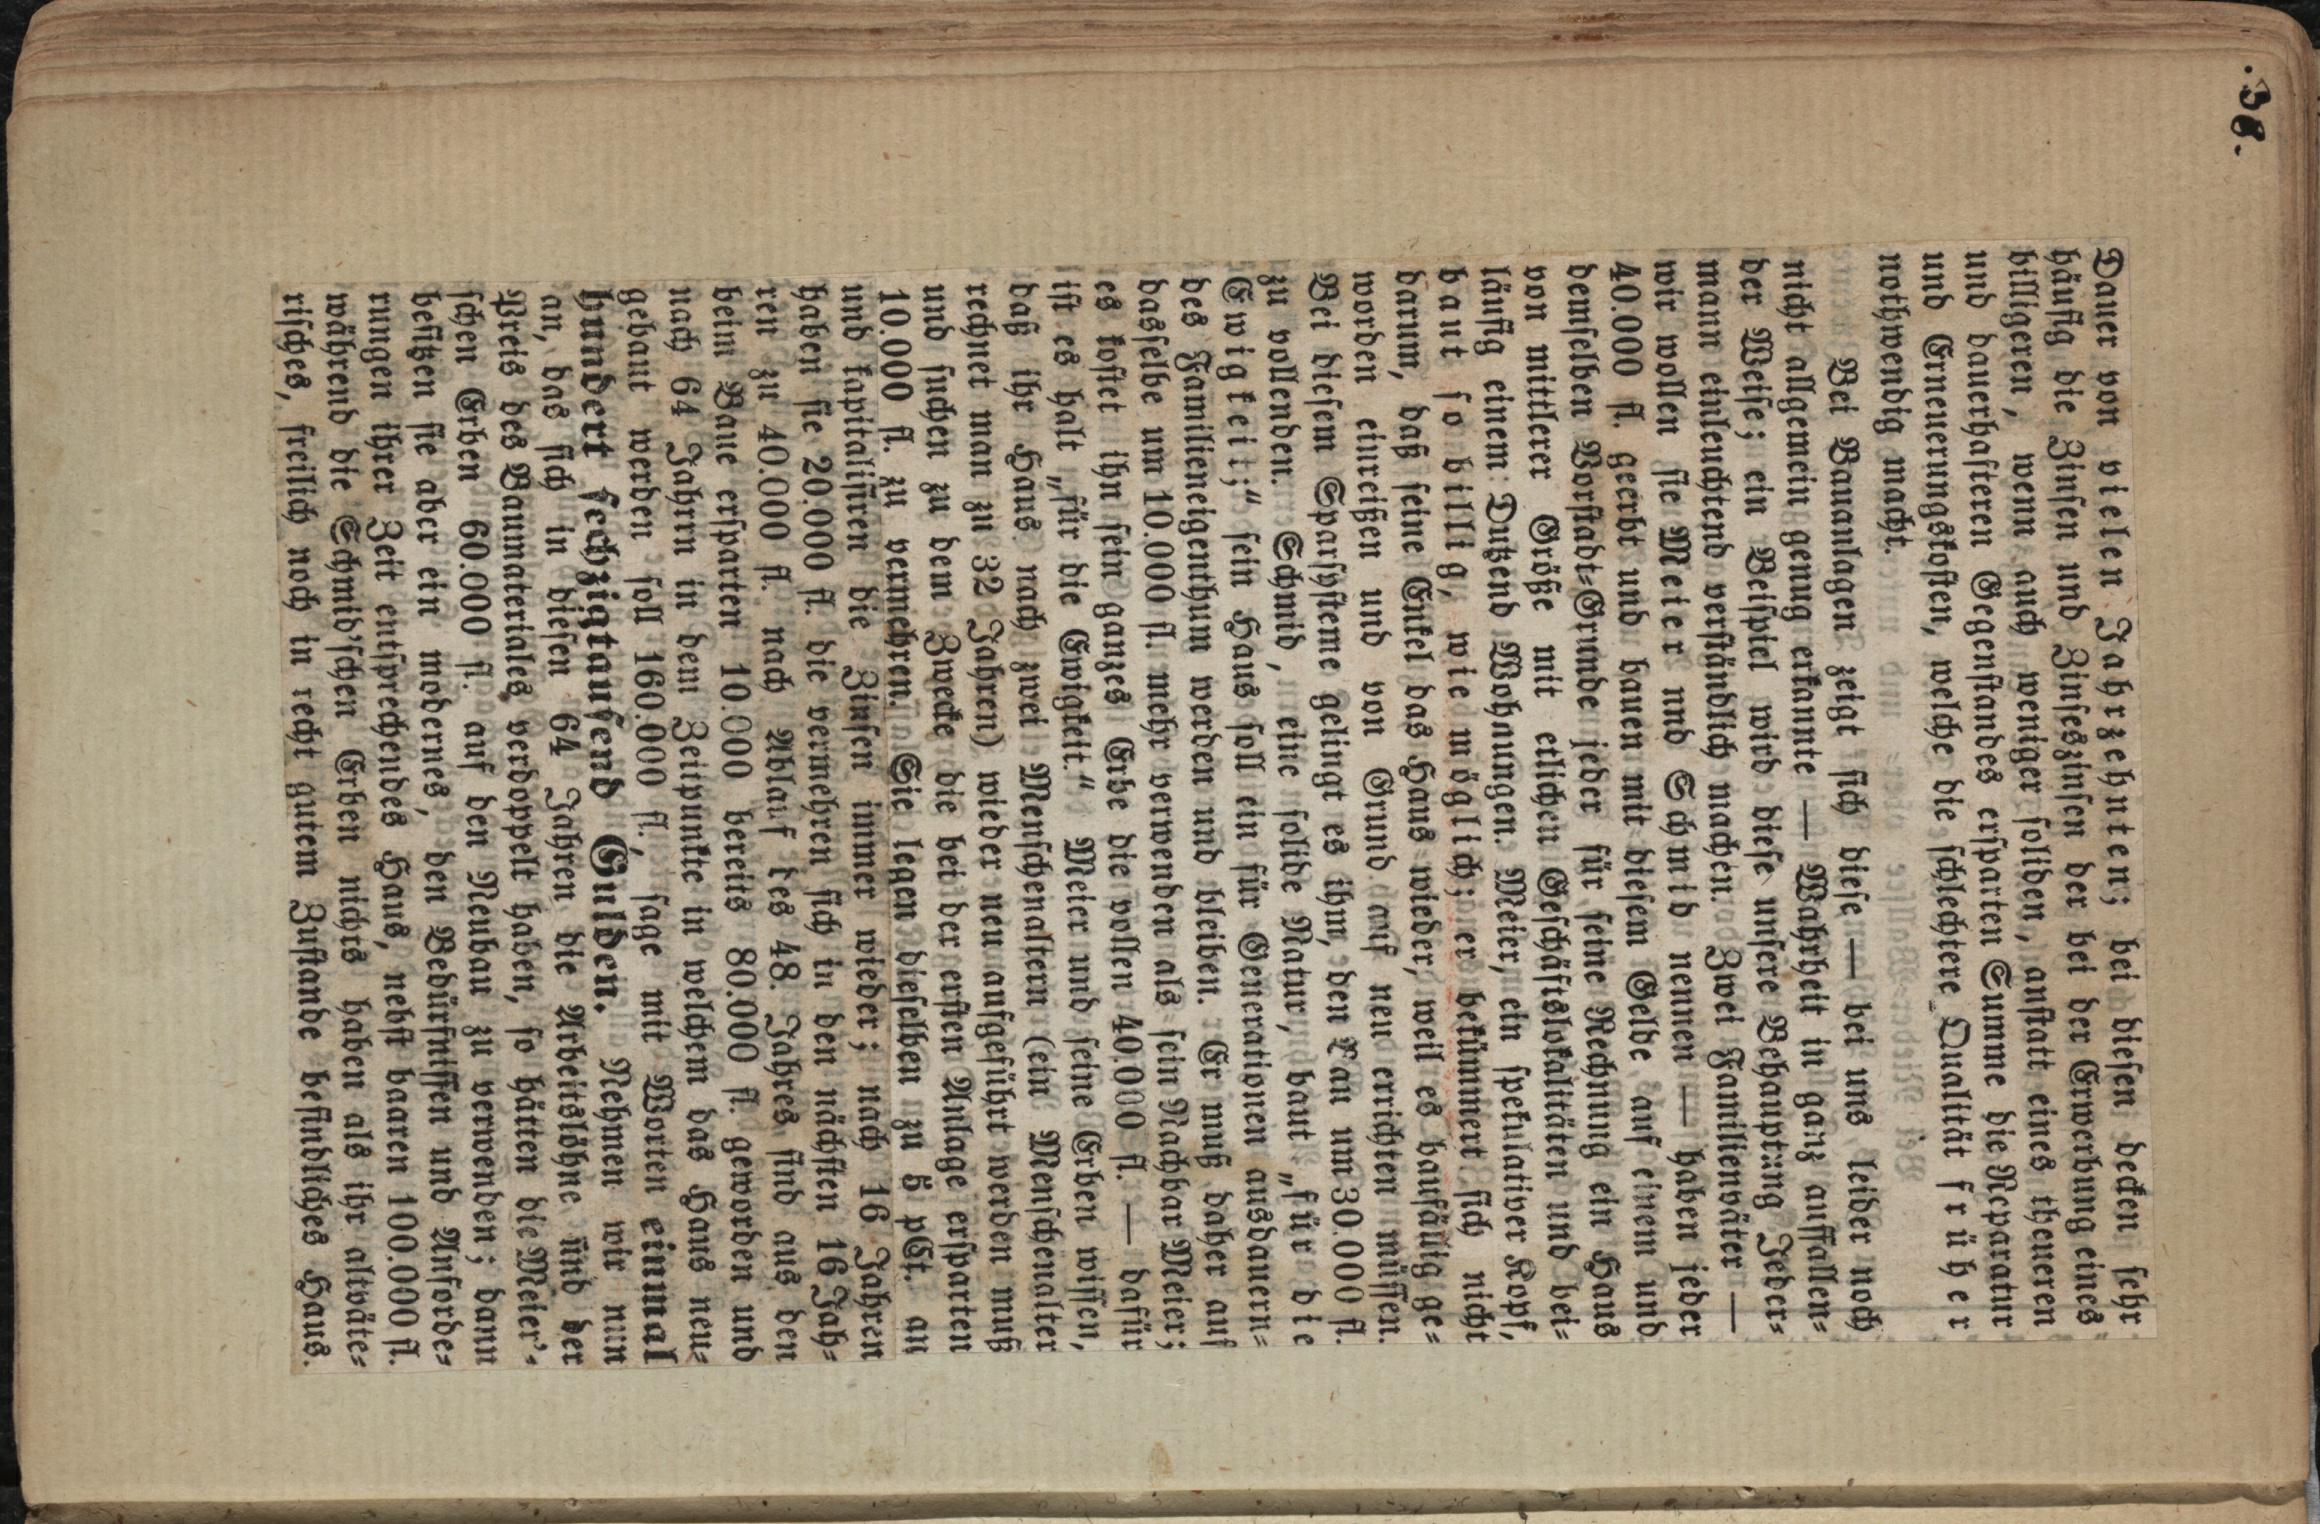 38.
Dauer von vielen Jahrzehnten; bei diesen decken sehr
häufig die Zinsen und Zinseszinsen der bei der Erwerbung eines
billigeren, wenn auch weniger soliden, anstatt eines theueren
und dauerhafteren Gegenstandes ersparten Summe die Reparatur
und Erneuerungskosten, welche die schlechtere Qualität früher
nothwendig macht.
Bei Bauanlagen zeigt sich diese — bei uns leider noch
nicht allgemein genug erkannte — Wahrheit in ganz auffallen-
der Weise; ein Beispiel wird diese unsere Behauptung Jeder-
mann einleuchtend verständlich machen. Zwei Familienväter —
wir wollen sie Meier und Schmid nennen — haben jeder
40.000 fl. geerbt und bauen mit diesem Gelde auf einem und
demselben Vorstadt-Grunde jeder für seine Rechnung ein Haus
von mittlerer Größe mit etlichen Geschäftslokalitäten und bei-
läufig einem Dutzend Wohnungen. Meier, ein spekulativer Kopf,
baut so billig, wie möglich; er bekümmert sich nicht
darum, daß seine Enkel das Haus wieder, weil es baufällig ge-
worden einreißen und von Grund auf neu errichten müssen.
Bei diesem Sparsysteme gelingt es ihm, den Bau um 30.000 fl.
zu vollenden. Schmid, eine solide Natur, baut „für die
Ewigkeit;“ sein Haus soll ein für Generationen ausdauern-
des Familieneigenthum werden und bleiben. Er muß daher auf
dasselbe um 10.000 fl. mehr verwenden als sein Nachbar Meier;
es kostet ihn sein ganzes Erbe die vollen 40.000 fl. — dafür
ist es halt „für die Ewigkeit.“ Meier und seine Erben wissen,
daß ihr Haus nach zwei Menschenaltern (ein Menschenalter
rechnet man zu 32 Jahren) wieder neu aufgeführt werden muß
und suchen zu dem Zwecke die bei der ersten Anlage ersparten
10.000 fl. zu vermehren. Sie legen dieselben zu 5 pCt. an
und kapitalisiren die Zinsen immer wieder; nach 16 Jahren
haben sie 20.000 fl. die vermehren sich in den nächsten 16 Jah-
ren zu 40.000 fl. nach Ablauf des 48. Jahres sind aus den
beim Baue ersparten 10.000 bereits 80.000 fl. geworden und
nach 64 Jahrn in dem Zeitpunkte in welchem das Haus neu-
gebaut werden soll 160.000 fl., sage mit Worten einmal
hundert sechzigtausend Gulden. Nehmen wir nun
an, das sich in diesen 64 Jahren die Arbeitslöhne und der
Preis des Baumateriales verdoppelt haben, so hätten die Meier'-
schen Erben 60.000 fl. auf den Neubau zu verwenden; dann
besitzen sie aber ein modernes, den Bedürfnissen und Anforde-
rungen ihrer Zeit entsprechendes Haus, nebst baaren 100.000 fl.
während die Schmid'schen Erben nichts haben als ihr altväte-
risches, freilich noch in recht gutem Zustande befindliches Haus.